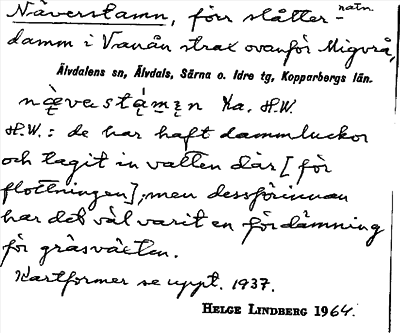 Näverstamn, förr slåtter-natn.
damm i Vanån strax ovanför Migvrå,
Älvdalens sn, Älvdals, Särna o. Idre tg, Kopparbergs län.
Ka. H.W.
H.W.: de har haft dammluckor
och tagit in vatten där [för
flottningen], men dessförinnan
har det väl varit en fördämning
för gräsväxten.
Kartformer se uppt. 1937.
HELGE LINDBERG 1964.